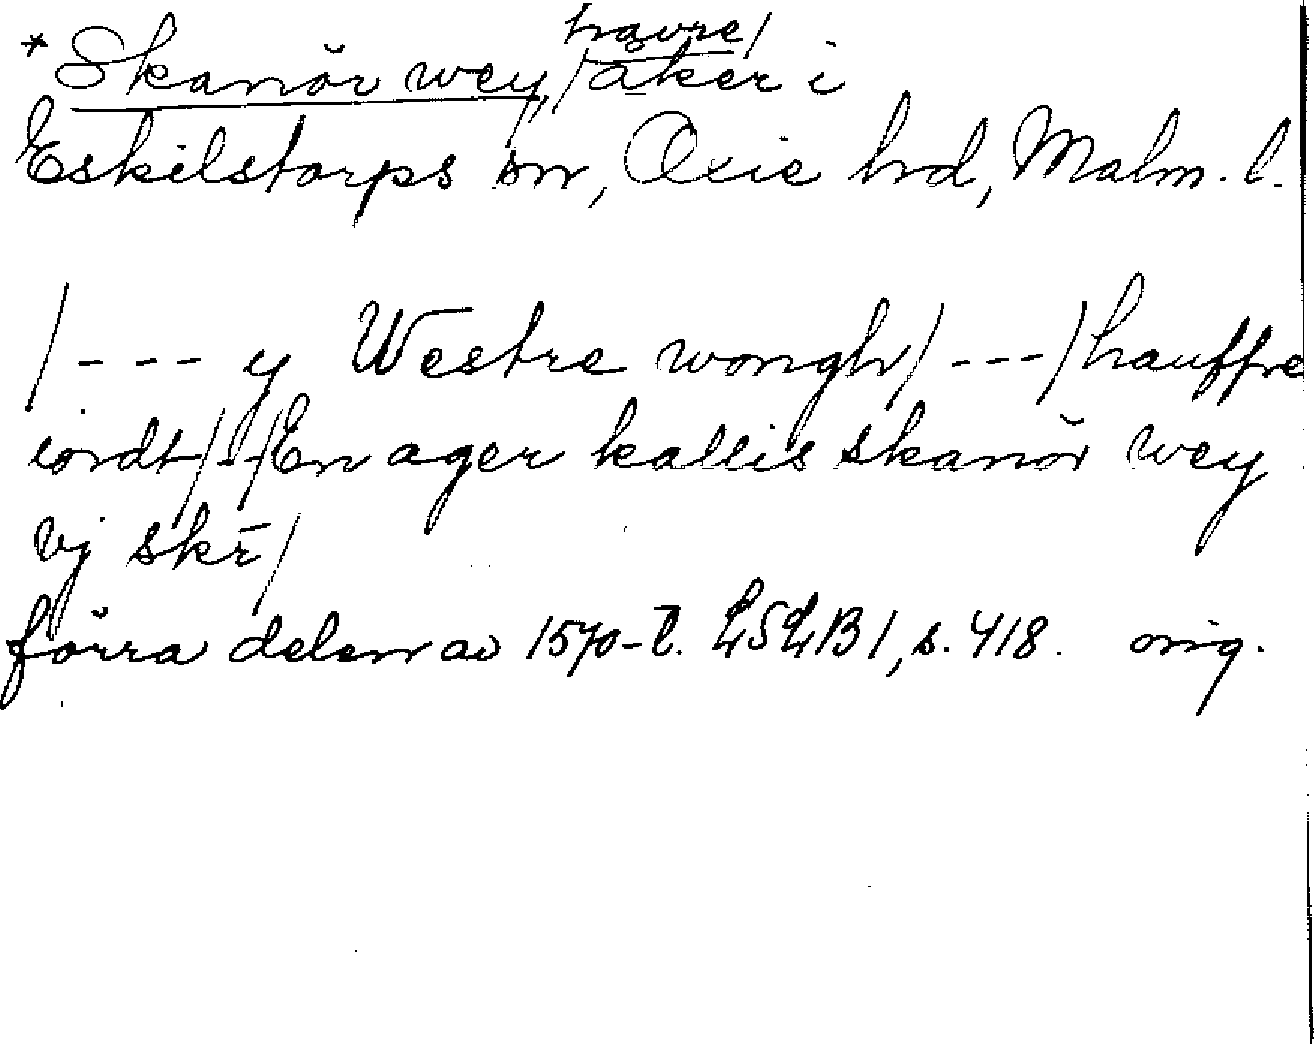 *Skanör wey, /havre/
åker i
Eskilstorps sn, Oxie hrd, Malm. l.
/--- y Westre wongh/---/hauffre
iordt/--/En ager kallis skanör wey
vj skr̄/
förra delen av 1570-t. LSLB1, s. 418. orig.